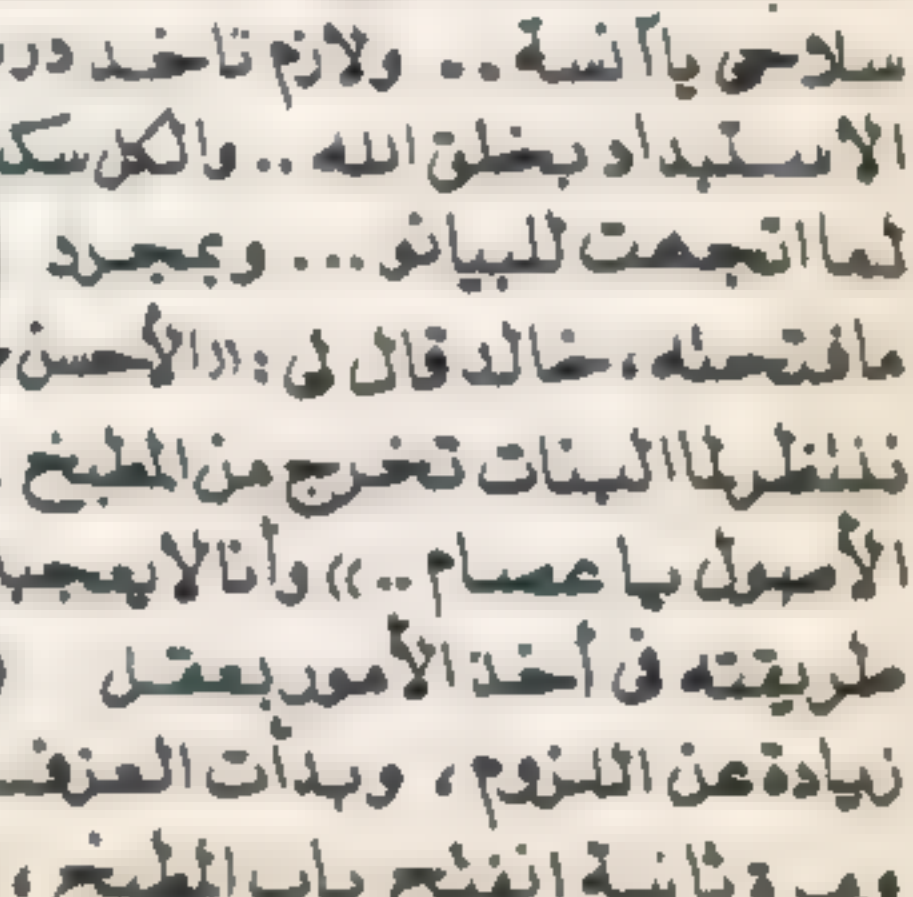 سلاحى يا آنسة .. ولازم تاخد
الاستبداد بخلق الله .. والكل
لما اتجهت للبيانو ... وبمجرد
مافتحته ، خالد قال لى : « الأحسن
ننتظر لما البنات تخرج من المطبخ
الأصول يا عصام .. » وأنا لا يعجب
طريقته فى أخذ الأمور بعقل
زيادة عن اللزوم ، وبدأت العزف
ثانية انفتح باب المطبخ ،